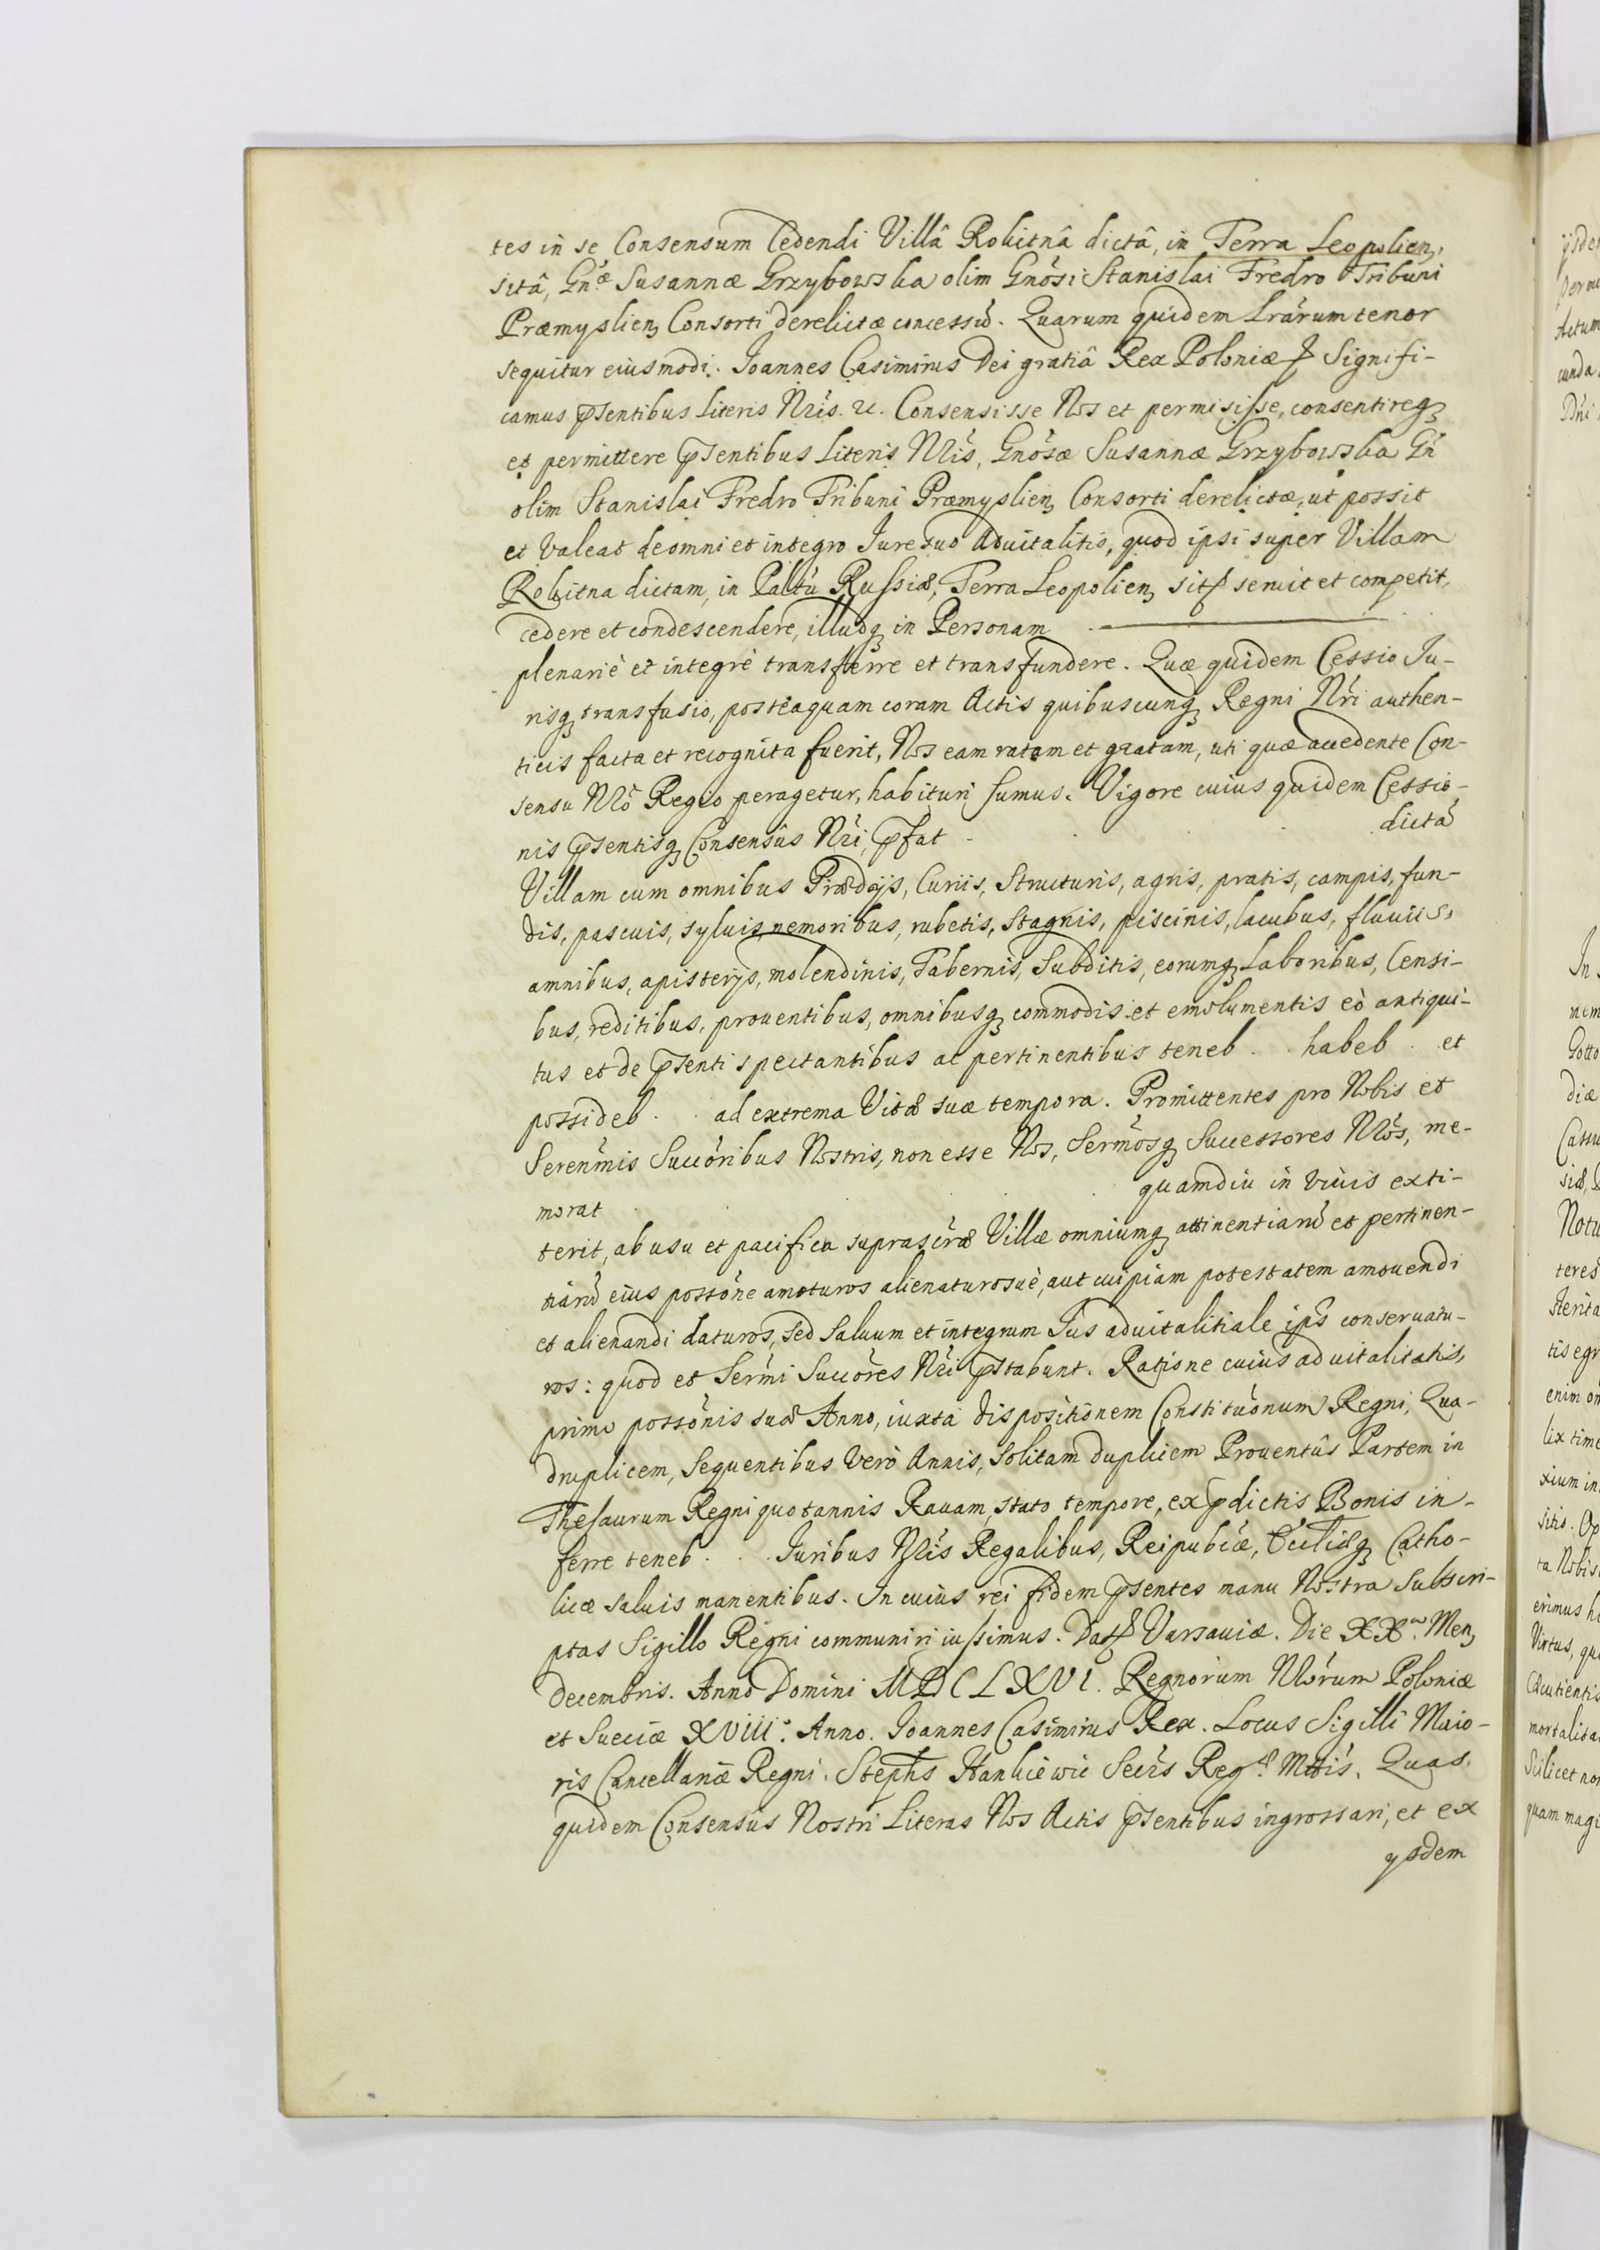 tes in se Consensum Cedendi Villâ Rokitnâ dictâ, in Terra Leopolien,
sitâ, Gn̄æ Susannæ Grzybowska olim Gnōsi Stanislai Fredro Tribuni
Præmyslien, Consorti derelictæ concessū. Quarum quidem Lrārum tenor
sequitur eiusmodi. Joannes Casimirus Dei gratiâ Rex Poloniæ ꝑ Signifi-
camus p̄sentibus Literis Nr̄is. &c. Consensisse Nos et permisisse, consentireq́
et permittere p̄sentibus Literis Nr̄is, Gnōsæ Susannæ Grzybowska Gn̄
olim Stanislai Fredro Tribuni Præmyslien, Consorti derelictæ, ut possit
et valeat de omni et integro Jure suo advitalitio, quod ipsi super Villam
Rokitna dictam, in Paltū Russiæ, Terra Leopolien, sitꝑ seruit et competit,
cedere et condescendere, illudq́ in Personam
plenariè et integrè transferre et transfundere. Quæ quidem Cessio Ju-
risq́ transfusio, posteaquam coram Actis quibuscunq́ Regni Nr̄i authen-
ticis facta et recognita fuerit, Nos eam ratam et gratam, uti quæ accedente Con-
sensu Nr̄o Regio peragetur, habituri sumus. Vigore cuius quidem Cessio-
nis p̄sentisq́ Consensûs Nr̄i, p̄fat dictā
Villam cum omnibus Prædijs, Curiis, Structuris, agris, pratis, campis, fun-
dis, pascuis, syluis, nemoribus, rubetis, stagnis, piscinis, lacubus, fluuiis,
amnibus, apisterijs, molendinis, Tabernis, Subditis, eorumq́ Laboribus, Censi-
bus, reditibus, prouentibus, omnibusq́ commodis et emolumentis eò antiqui-
tus et de p̄senti spectantibus ac pertinentibus teneb . . habeb . et
possideb . . ad extrema Vitæ suæ tempora. Promittentes pro Nobis et
Serenm̄is Succōribus Nostris, non esse Nos, Serm̄osq́ Successores Nr̄os, me-
morat quamdiu in viuis exti-
terit, ab usu et pacifica suprascr̄æ Villæ omniumq́ attinentiarū et pertinen-
tiarū eius possōne amoturos alienaturosuè, aut cuipiam potestatem amouendi
et alienandi daturos, sed saluum et integrum Jus aduitalitiale ip̄s conseruatu-
ros: quod et Serm̄i Succōres Nr̄i p̄stabunt. Ratione cuius aduitalitatis,
primo possōnis suæ Anno, iuxta dispositionem Constituōnum Regni, Qua-
druplicem, sequentibus verò Annis, solitam duplicem Prouentûs Partem in
Thesaurum Regni quotannis Rauam, stato tempore, ex p̄dictis Bonis in-
ferre teneb . . Juribus Nr̄is Regalibus, Reipubcæ, Eccliæq́ Catho-
licæ saluis manentibus. In cuius rei fidem p̄sentes manu Nostra Subscri-
ptas Sigillo Regni communiri iussimus. Datꝑ Varsauiæ. Die XXa. Men,
Decembris. Anno Domini MDCLXVI. Regnorum Nr̄orum Poloniæ
et Sueciæ XVIII. Anno. Joannes Casimirus Rex. Locus Sigilli Maio-
ris Cancellariæ Regni. Stephs Hankiewic Secrs Regæ Mttis. Quas
quidem Consensûs Nostri Literas Nos Actis p̄sentibus ingrossari, et ex
ysdem